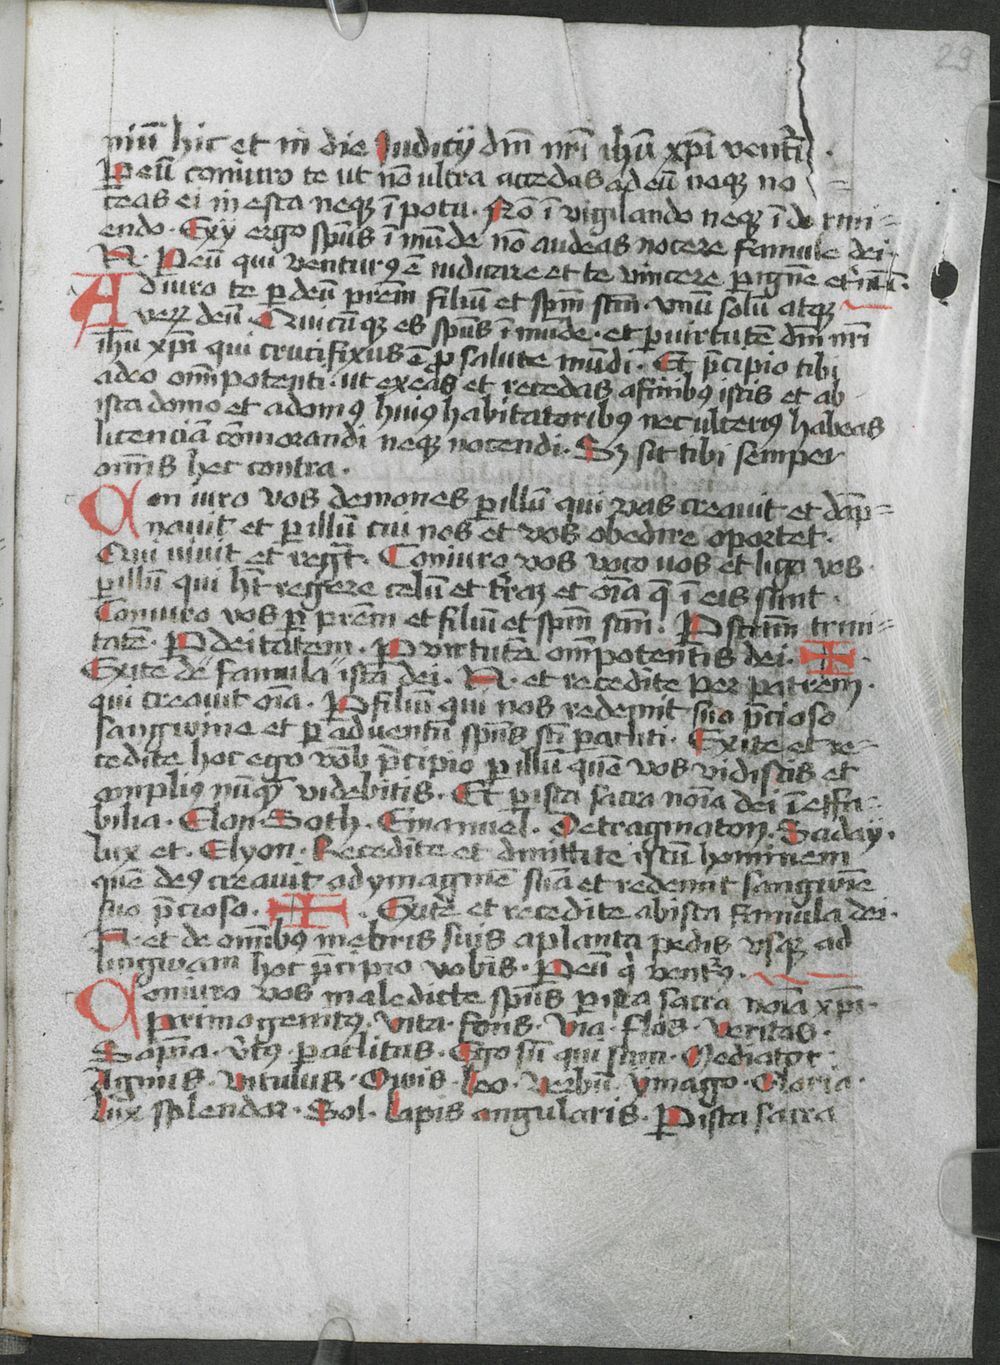 29
niū hic et in die Iudicij dm̄ nr̄i ihū xp̄i ventr̄i ·
Peū coniuro te ut nō ultra accedas ad eū neqꝫ no =
ceas ei in esca neqꝫ ī potu · Nō ī vigilando neqꝫ ī dormi =
endo · Exy ergo sp̄us īmūde nō audeas nocere famule dei ·
N · Peū qui venturꝰ ē iudicare et te vincere p ignē
Adiuro te p deū pr̄em filiū et sp̄m scm̄ · vnū solū atqꝫ
verꝝ deū · Quicūqꝫ es sp̄us īmūde · et p virtutē dm̄ nr̄i
ihū xp̄i qui crucifixus ē p salute mūdi · Et p̄cipio tibi
a deo om̄ipotenti · ut exeas et recedas a finibꝰ istis et ab
ista domo et a domꝰ huiꝰ habitatoribꝰ nec ulteriꝰ habeas
licenciā cōmorandi neqꝫ nocendi · Sꝫ sit tibi semper
om̄is hec contra ·
Coniuro vos demones p illū qui vos creauit et dāp =
nauit et p illū cui nos et vos obedire oportet ·
Qui viuit et regt̄ · Coniuro vos voco uos et ligo vos ·
p illū qui ht̄ regere celū et tr̄aꝫ et oīa q̄ ī eis sunt ·
Coniuro vos p pr̄em et filiū et sp̄m scm̄ · P scām trini =
tatē · P deitatem · P virtutē om̄ipotentis dei · ✠ ·
Exite de famula ista dei · N · et recedite per patrem ·
qui creauit oīa · P filiū qui nos redemit suo p̄cioso
sangwine et p aduentū sp̄us sci paclīti · Exite et re =
cedite hoc ego vob̄ p̄cipio p illū quē vos vidistis et
ampliꝰ nūqꝫ videbitis · Et p ista sacra noīa dei ī effa =
bilia · Elon · Soth · Emanuel · Tetragmaton · Saday ·
lux et · Elyon · Recedite et dimittite istū hominem
quē deꝰ creauit ad ymaginē suā et redemit sangwīe
suo p̄cioso · ✠ · Exite et recedite ab ista famula dei ·
N · et de om̄ibꝰ mēbris suis a planta pedis vsqꝫ ad
lingwam hoc p̄cipio vobis · Peū q̇ ventr̄ ·
Coniuro vos maledicte sp̄us p ista sacra noīa xp̄i ·
Primogenitꝰ · vita · fons · via · flos · veritas ·
Sapīa · v̇tꝰ · paclitus · Ego sū qui sum · Mediator ·
Agnus · vitulus · Owis · leo · verbū · ymago · Gloria ·
lux splendor · Sol · lapis angularis · P ista sacra